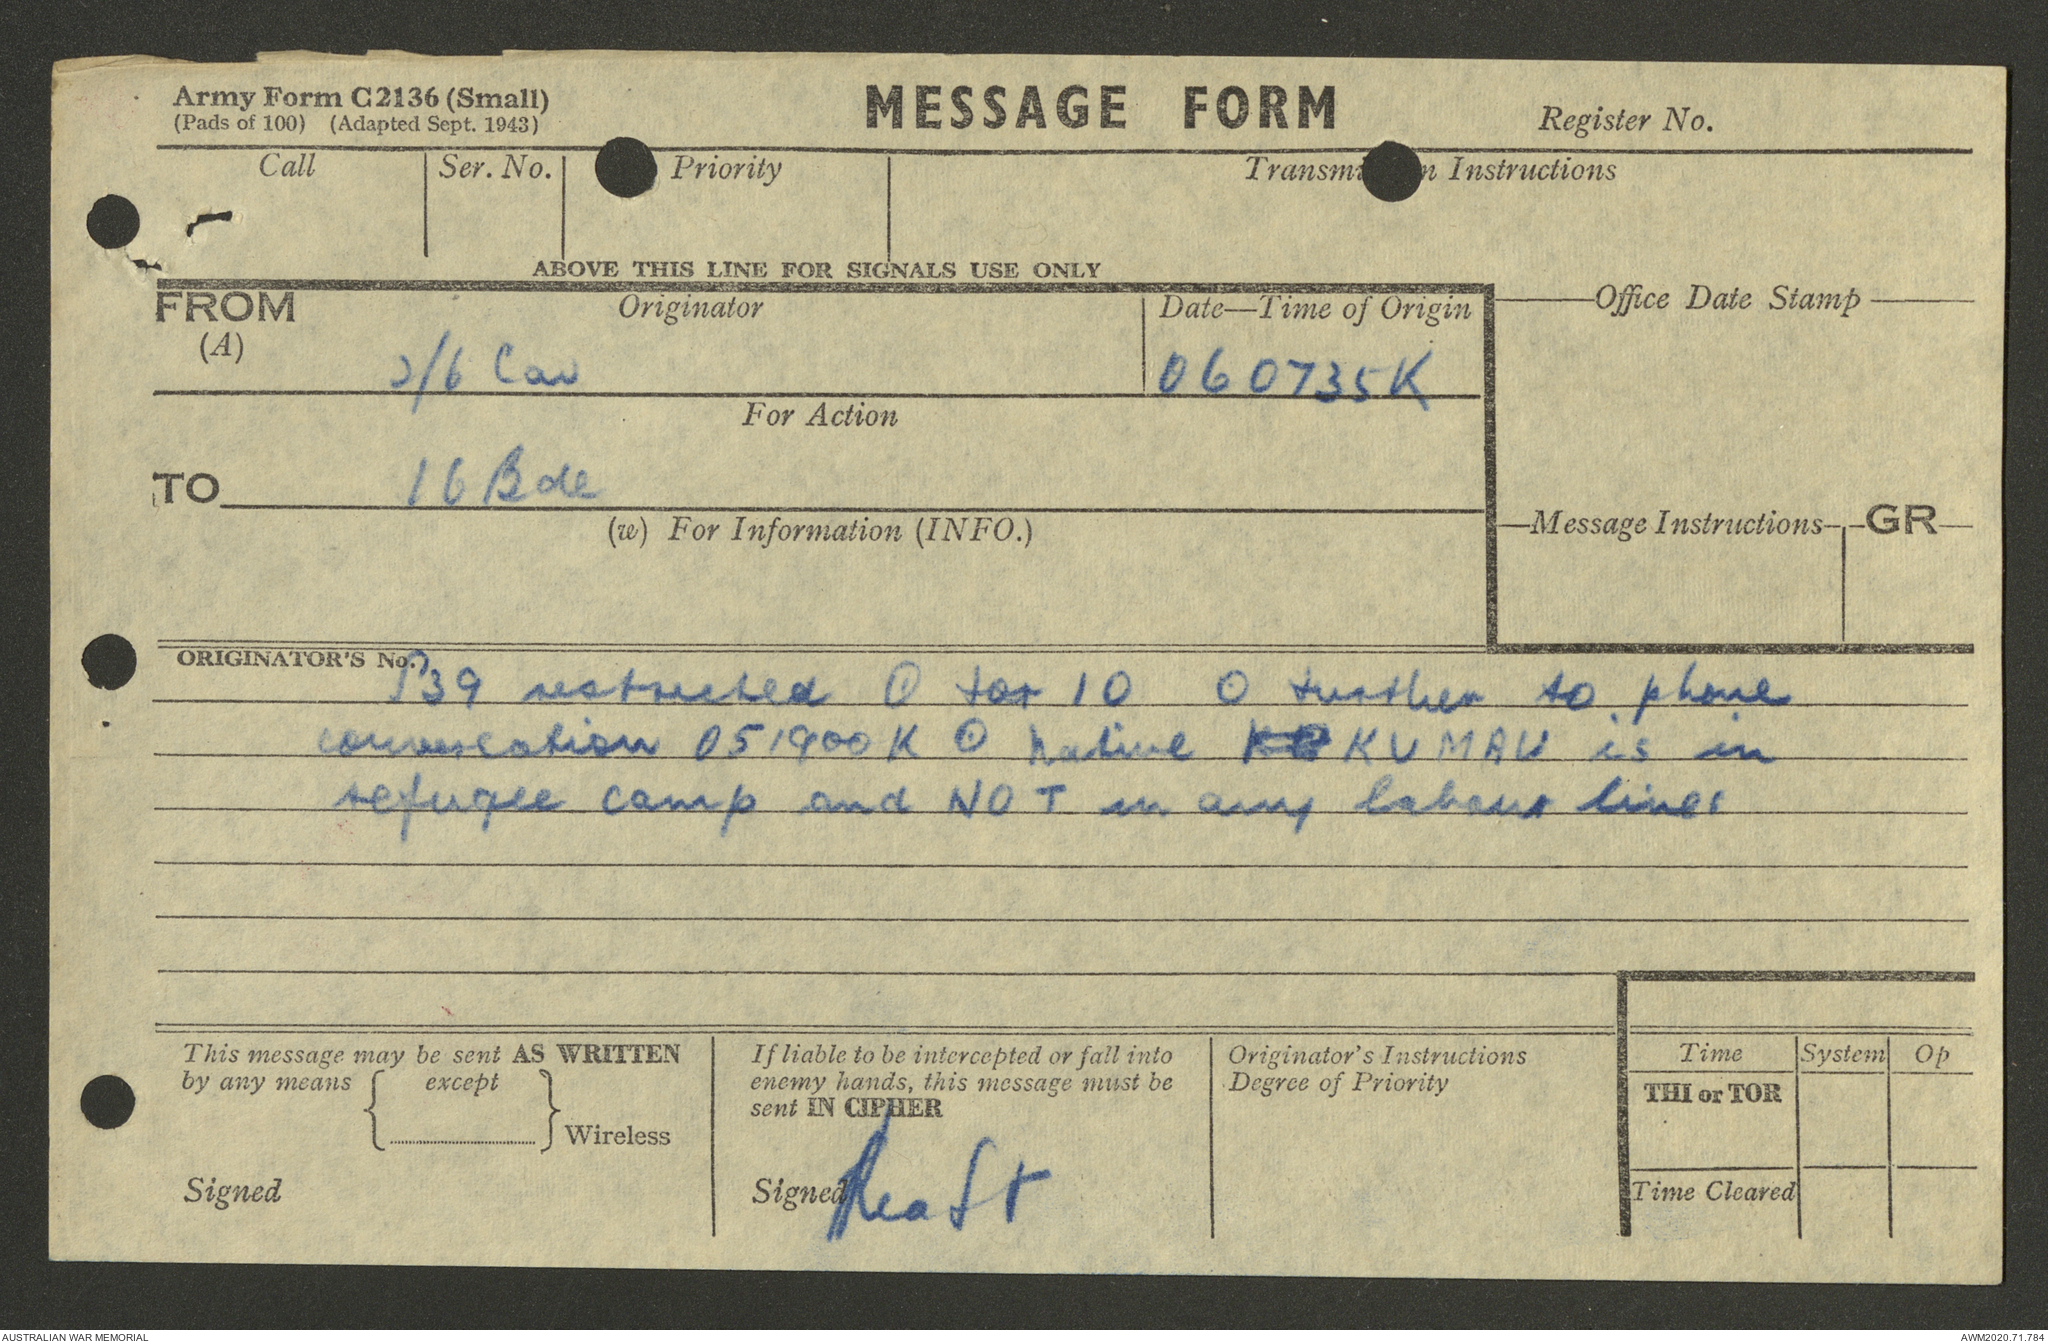 Army Form C2136 (Small)
(Pads of 100) (Adapted Sept. 1943)
MESSAGE FORM
Register No.
Call
Ser. No.
Priority
Transmi n Instructions
ABOVE THIS LINE FOR SIGNALS USE ONLY
FROM
(A)
Originator
Date—Time of Origin
Office Date Stamp
2/6 Cav
060735K
For Action
TO
16 Bde
(w) For Information (INFO.)
Message Instructions
GR
ORIGINATOR'S No.
I39 restricted O for IO O further to phone
conversation 051900K O native KUMAU is in
refugee camp and NOT in any labour lines
This message may be sent AS WRITTEN
by any means except
Wireless
Signed
If liable to be intercepted or fall into
enemy hands, this message must be
sent IN CIPHER
Signed
Originator's Instructions
Degree of Priority
Time
System
Op
THI or TOR
Time Cleared
AUSTRALIAN WAR MEMORIAL
AWM2020.71.784